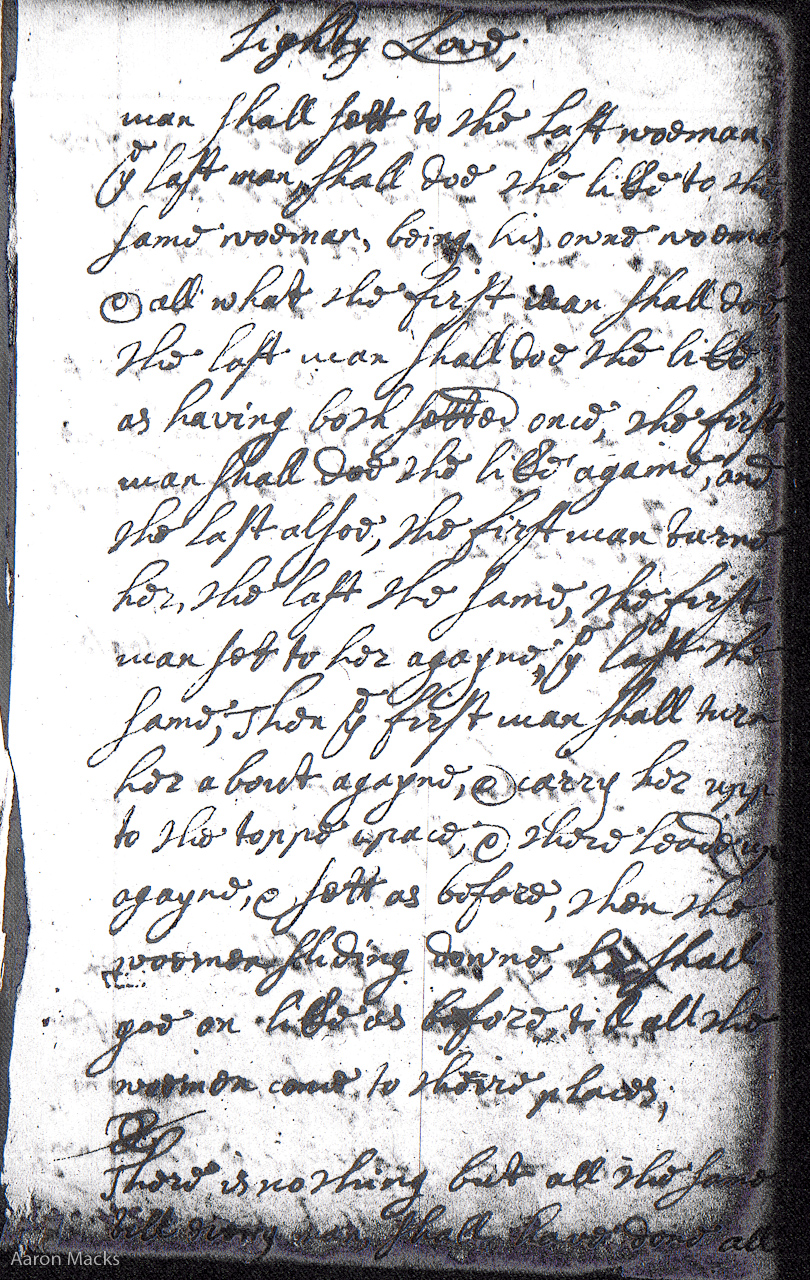 Lighty Love;
man shall sett to the last woeman,
ye last man, shall doe the like to the
same woeman, being his owne woeman
& all what the first man shall doe,
the last man shall doe the like,
as having both setted once, the first
man shall doe the like againe, and
the last alsoe, the first man turne
her, the last the same, the first
man sett to her agayne, ye last the
same, Then ye first man shall turn
her about agayne, & carry her upp
to the toppe apace, & there leade up
agayne, & sett as before, then the
woemen sliding downe, he shall
goe on like as before, till all the
woemen come to theire places;
There is nothing but all the same
till every man shall have done all
Aaron Macks